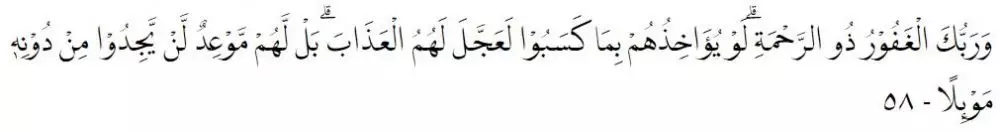 وَرَبُّكَ الْغَفُوْرُ ذُو الرَّحْمَةِۗ لَوْ يُؤَاخِذُهُمْ بِمَا كَسَبُوْا لَعَجَّلَ لَهُمُ الْعَذَابَۗ بَلْ لَّهُمْ مَّوْعِدٌ لَّنْ يَّجِدُوْا مِنْ دُوْنِهٖ
مَوْىِٕلًا - ٥٨